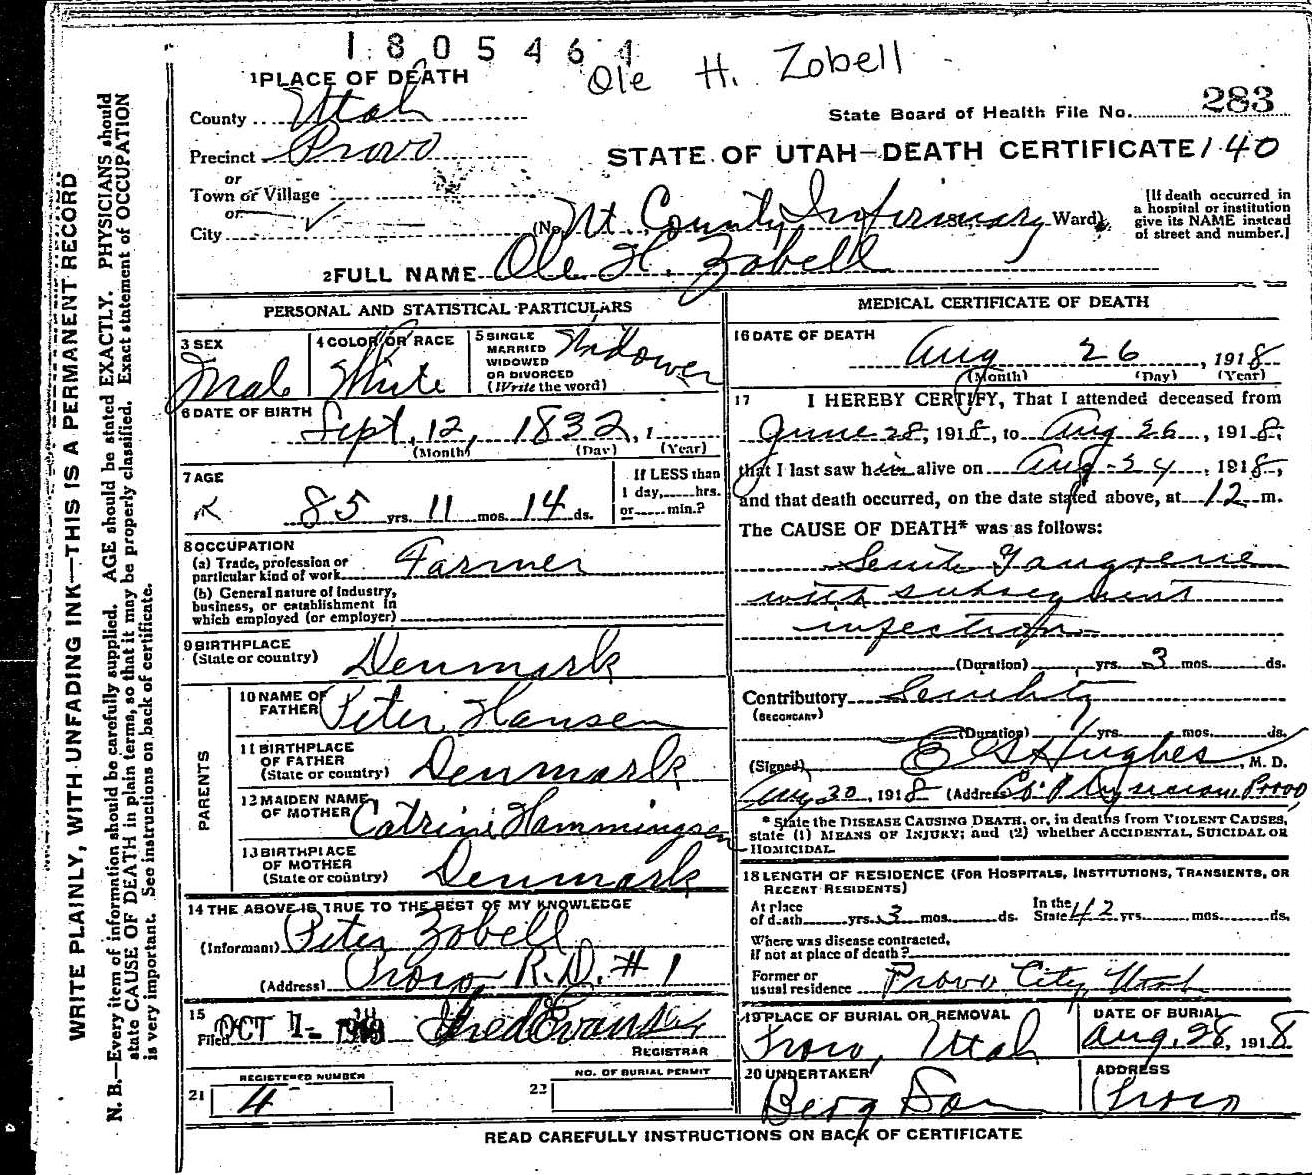 1805464
Ole H. Zobell
1 PLACE OF DEATH
County Utah
State Board of Health File No. 283
Precinct Provo
STATE OF UTAH—DEATH CERTIFICATE 140
or
Town or Village
or
City (No. Ut County Infirmary Ward)
[If death occurred in
a hospital or institution
give its NAME instead
of street and number.]
2 FULL NAME Ole H. Zobell
PERSONAL AND STATISTICAL PARTICULARS
3 SEX
Male
4 COLOR OR RACE
White
5 SINGLE
MARRIED
WIDOWED
OR DIVORCED
(Write the word)
Widower
6 DATE OF BIRTH
Sept. 12, 1832, 1
(Month) (Day) (Year)
7 AGE
85 yrs. 11 mos. 14 ds.
If LESS than
1 day, hrs.
or min.?
8 OCCUPATION
(a) Trade, profession or
particular kind of work Farmer
(b) General nature of industry,
business, or establishment in
which employed (or employer)
9 BIRTHPLACE
(State or country) Denmark
PARENTS
10 NAME OF
FATHER Peter Hansen
11 BIRTHPLACE
OF FATHER
(State or country) Denmark
12 MAIDEN NAME
OF MOTHER Catrine Hammingsen
13 BIRTHPLACE
OF MOTHER
(State or country) Denmark
14 THE ABOVE IS TRUE TO THE BEST OF MY KNOWLEDGE
(Informant) Peter Zobell
(Address) Provo R.D. # 1
15
Filed OCT 1- 191 Fred Evans
REGISTRAR
21 REGISTERED NUMBER
4
22 NO. OF BURIAL PERMIT
MEDICAL CERTIFICATE OF DEATH
16 DATE OF DEATH
Aug 26, 1918
(Month) (Day) (Year)
17 I HEREBY CERTIFY, That I attended deceased from
June 28, 1918, to Aug 26, 1918,
that I last saw him alive on Aug 24, 1918,
and that death occurred, on the date stated above, at 12 m.
The CAUSE OF DEATH* was as follows:
Senile Gangrene
with subsequent
infection
(Duration) yrs. 3 mos. ds.
Contributory Senility
(SECONDARY)
(Duration) yrs. mos. ds.
(Signed) E G Hughes, M. D.
Aug 30, 1918 (Address) Co. Physician, Provo,
* State the DISEASE CAUSING DEATH, or, in deaths from VIOLENT CAUSES,
state (1) MEANS OF INJURY; and (2) whether ACCIDENTAL, SUICIDAL OR
HOMICIDAL.
18 LENGTH OF RESIDENCE (FOR HOSPITALS, INSTITUTIONS, TRANSIENTS, OR
RECENT RESIDENTS)
At place
of death yrs. 3 mos. ds.
In the
State 42 yrs. mos. ds.
Where was disease contracted,
If not at place of death?
Former or
usual residence Provo City, Utah
19 PLACE OF BURIAL OR REMOVAL
Provo, Utah
DATE OF BURIAL
Aug. 28, 1918
20 UNDERTAKER
Berg Son
ADDRESS
Provo
READ CAREFULLY INSTRUCTIONS ON BACK OF CERTIFICATE
WRITE PLAINLY, WITH UNFADING INK—THIS IS A PERMANENT RECORD
N. B.—Every item of information should be carefully supplied. AGE should be stated EXACTLY. PHYSICIANS should
state CAUSE OF DEATH in plain terms, so that it may be properly classified. Exact statement of OCCUPATION
is very important. See instructions on back of certificate.